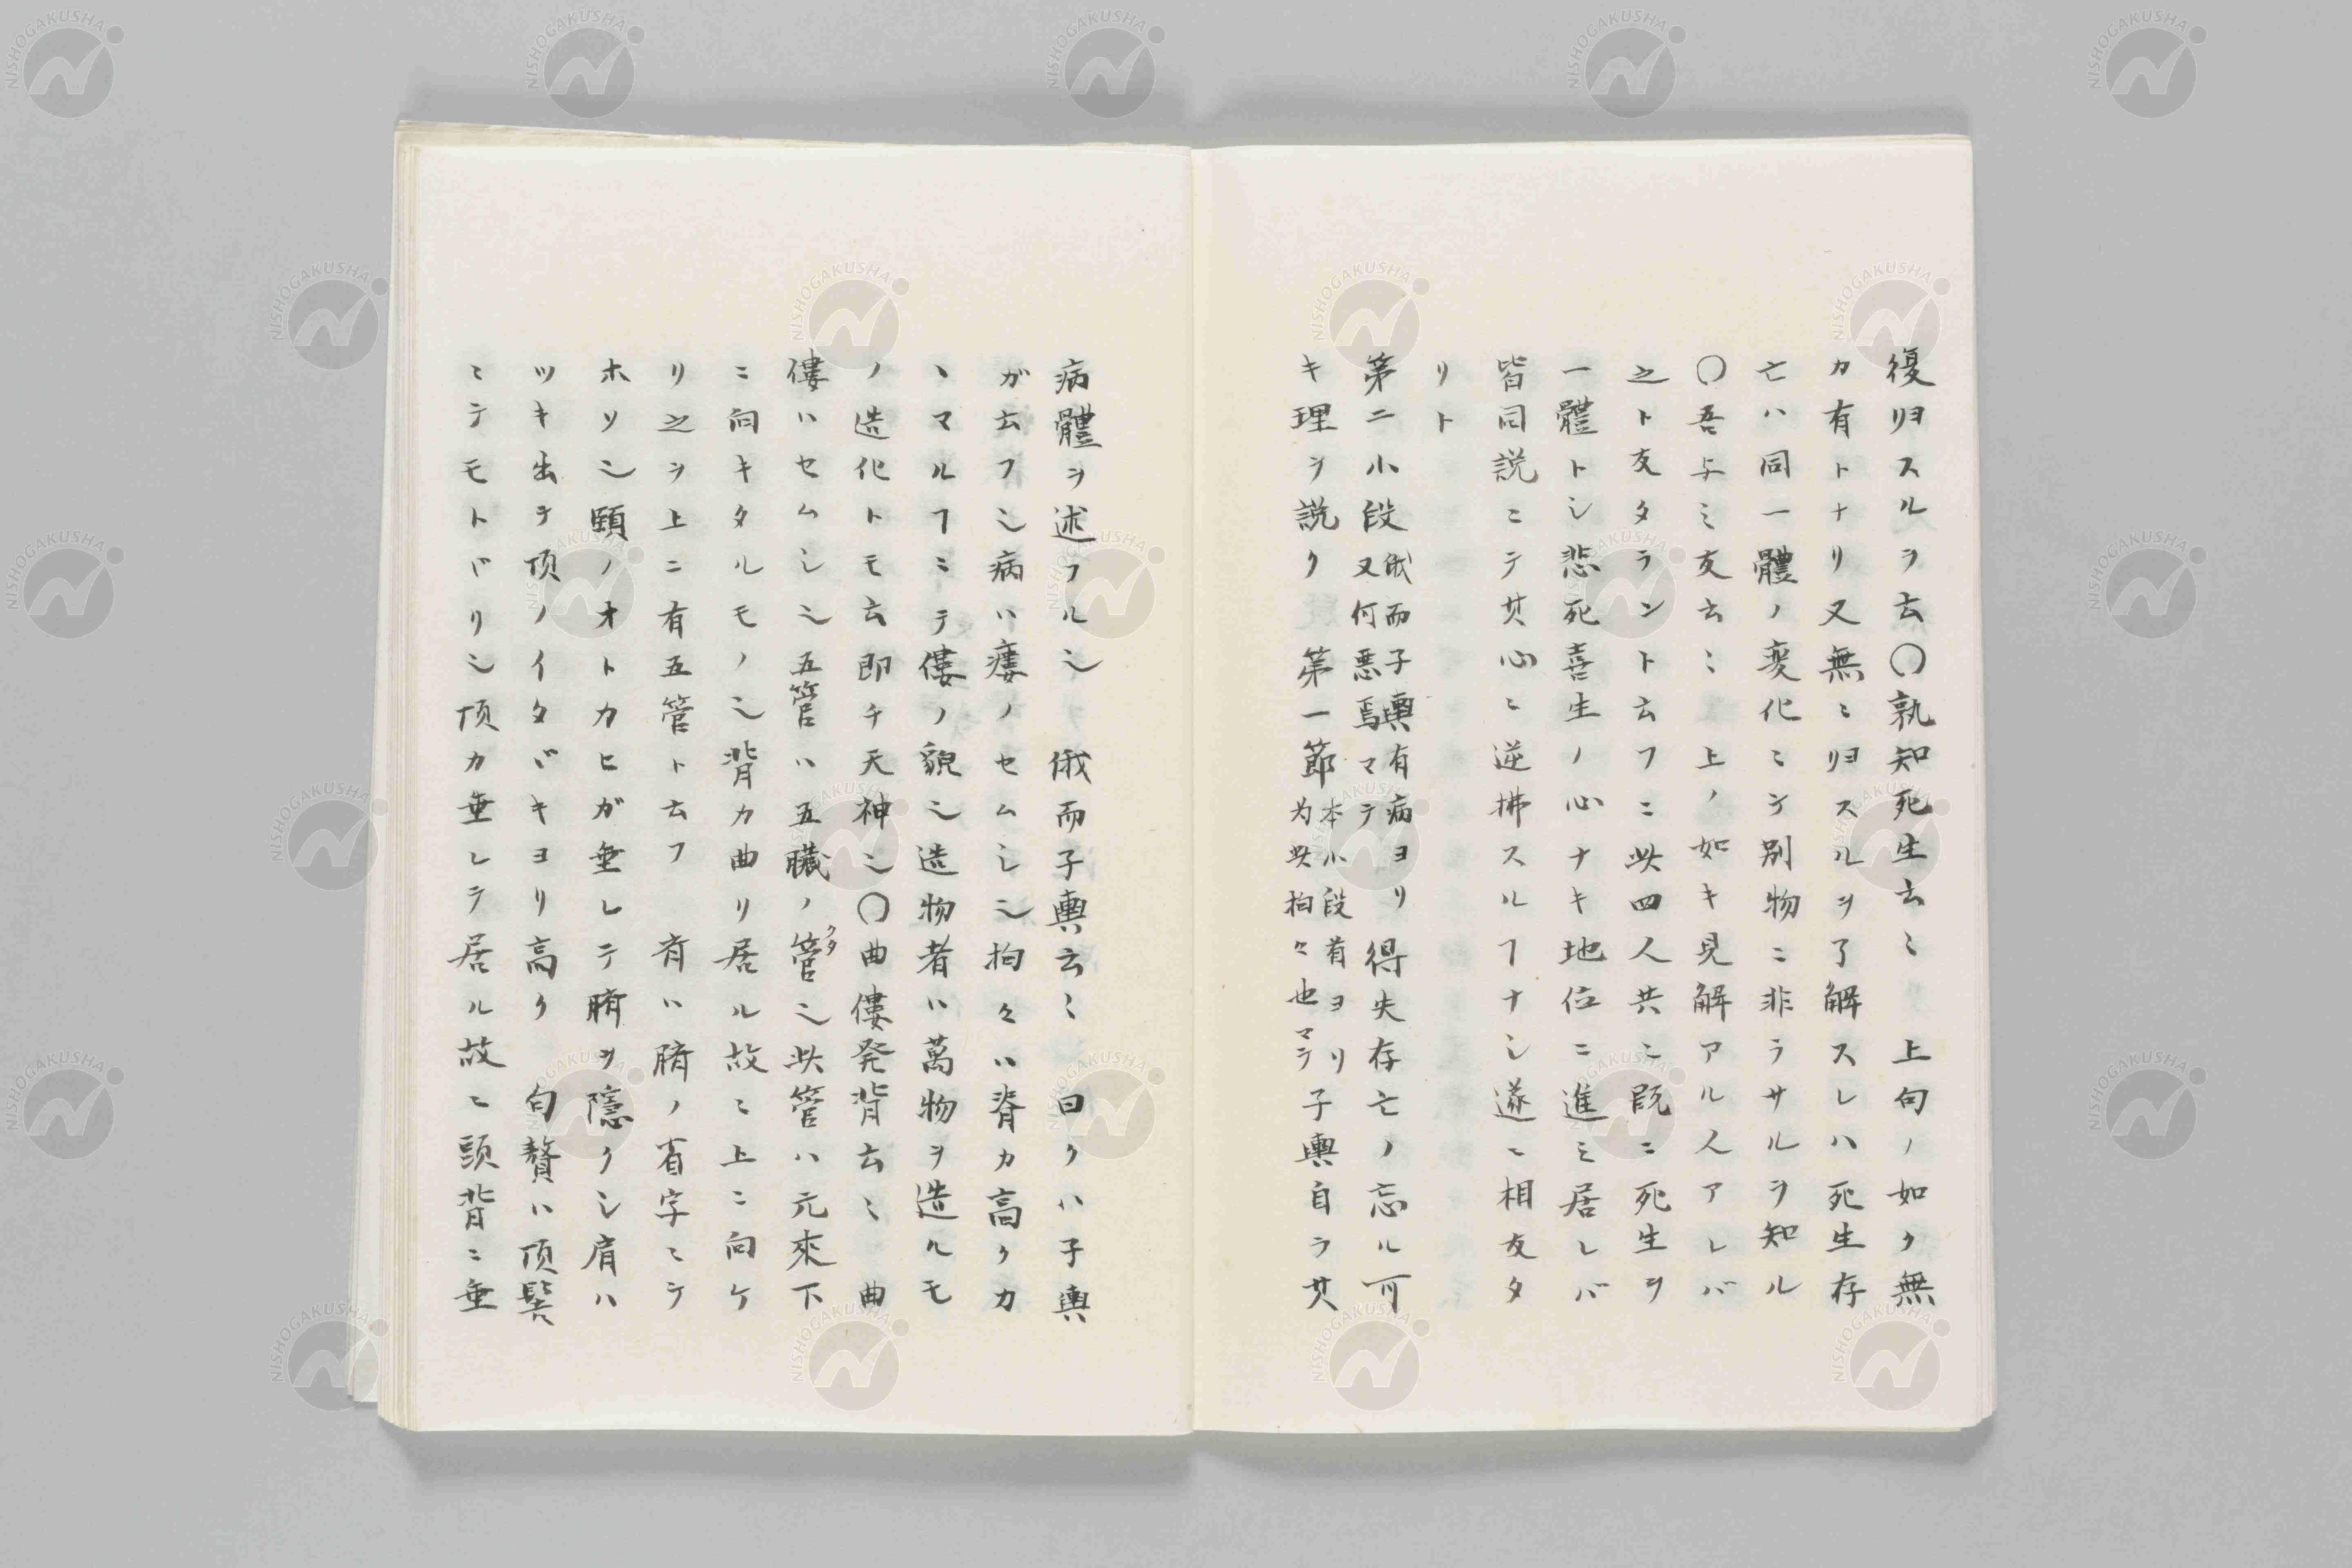 復リヨスルヲ云〇孰知死生云〻　上句ノ如ク無
カ有トナリ又無ニリヨスルヲ了解スレハ死生存
亡ハ同一體ノ変化ニシテ別物ニ非ラサルヲ知ル
〇吾与ミ友云〻　上ノ如キ見解アル人アレバ
之ト友タラントト云フニ此四人共ニ既ニ死生ヲ
一體トシ悲死喜生ノ心ナキ地位ニ進ミ居レバ
皆同説ニテ其心ニ逆拂スルヿナシ遂ニ相友タ
リト
第二小段俄而子輿有病ヨリ又何悪焉マテ得失存亡ノ忘ル可
キ理ヲ説ク　第一節本小段首ヨリ为此拘々也マテ子輿自ラ其
病體ヲ述フル也　俄而子輿云〻　曰クハ子輿
ガ云フ也病ハ瘻ノセムシ也拘々ハ脊カ高クカ
ヽマルヿニテ僂ノ貌也造物者ハ萬物ヲ造ルモ
ノ造化トモ云即チ天神也〇曲僂発背云〻　曲
僂ハセムシ也五管ハ五臓ノ管クタ也此管ハ元來下
ニ向キタルモノ也背カ曲リ居ル故ニ上ニ向ケ
リ之ヲ上ニ有五管ト云フ　斉ハ臍ノ省字ニテ
ホソ也頤ノオトカヒガ垂レテ臍ヲ隠クシ肩ハ
ツキ出テ頂ノイタヾキヨリ高ク　句贅ハ頂髻
ニテモトヾリ也頂カ垂レテ居ル故ニ頭背ニ垂